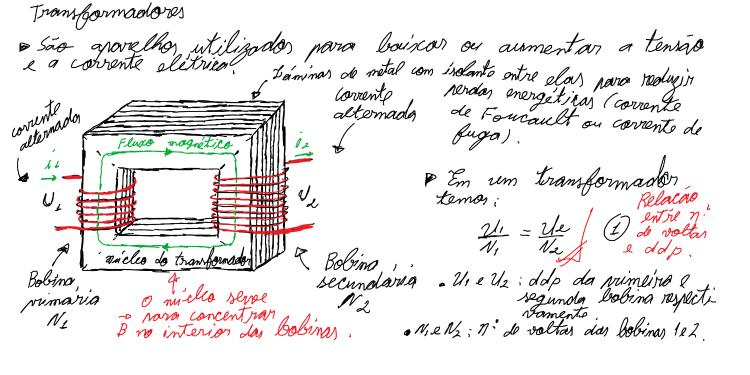 Transformadores
São aparelhos utilizados para baixar ou aumentar a tensão
e a corrente elétrica.
Lâminas de metal com isolante entre elas para reduzir
perdas energéticas (corrente
de Foucault ou corrente de
fuga).
corrente
alternada
corrente
alternada
Fluxo magnético
i₁
i₂
U₁
U₂
núcleo do transformador
Bobina
primária
N₁
Bobina
secundária
N₂
O núcleo serve
para concentrar
B no interior das bobinas.
Em um transformador
temos:
U₁/N₁ = U₂/N₂ (1)
Relação
entre nº
de voltas
e ddp.
• U₁ e U₂: ddp da primeira e
segunda bobina respecti
vamente
• N₁ e N₂: nº de voltas das bobinas 1 e 2.